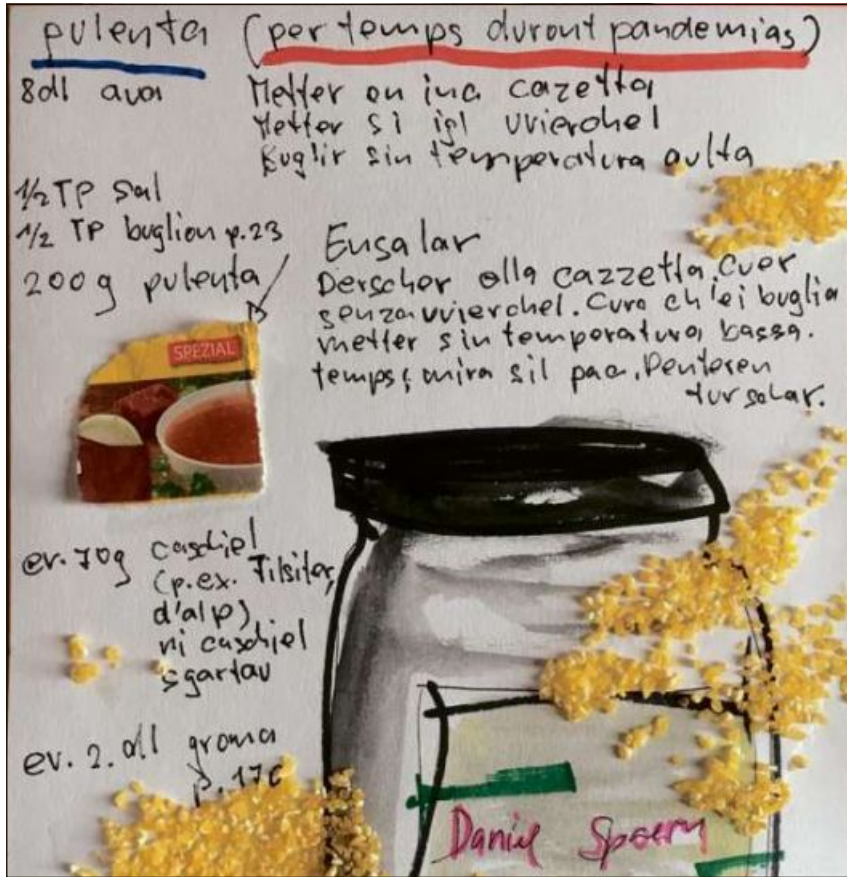 pulenta (per temps duront pandemias)
8dl aua
Metter en ina cazetta
Metter si igl uvierchel
Buglir sin temperatura aulta
1/2 TP sal
1/2 TP buglion p.23
200g pulenta
Ensalar
Derscher ella cazzetta. Cuer
senza uvierchel. Cura ch'ei buglia
metter sin temperatura bassa.
temps; mira sil pac. Denteren
turschar.
SPEZIAL
ev. 70g caschiel
(p.ex. Tilsiter,
d'alp)
ni caschiel
sgartau
ev. 2. dl groma
p. 170
Daniel Spoerri